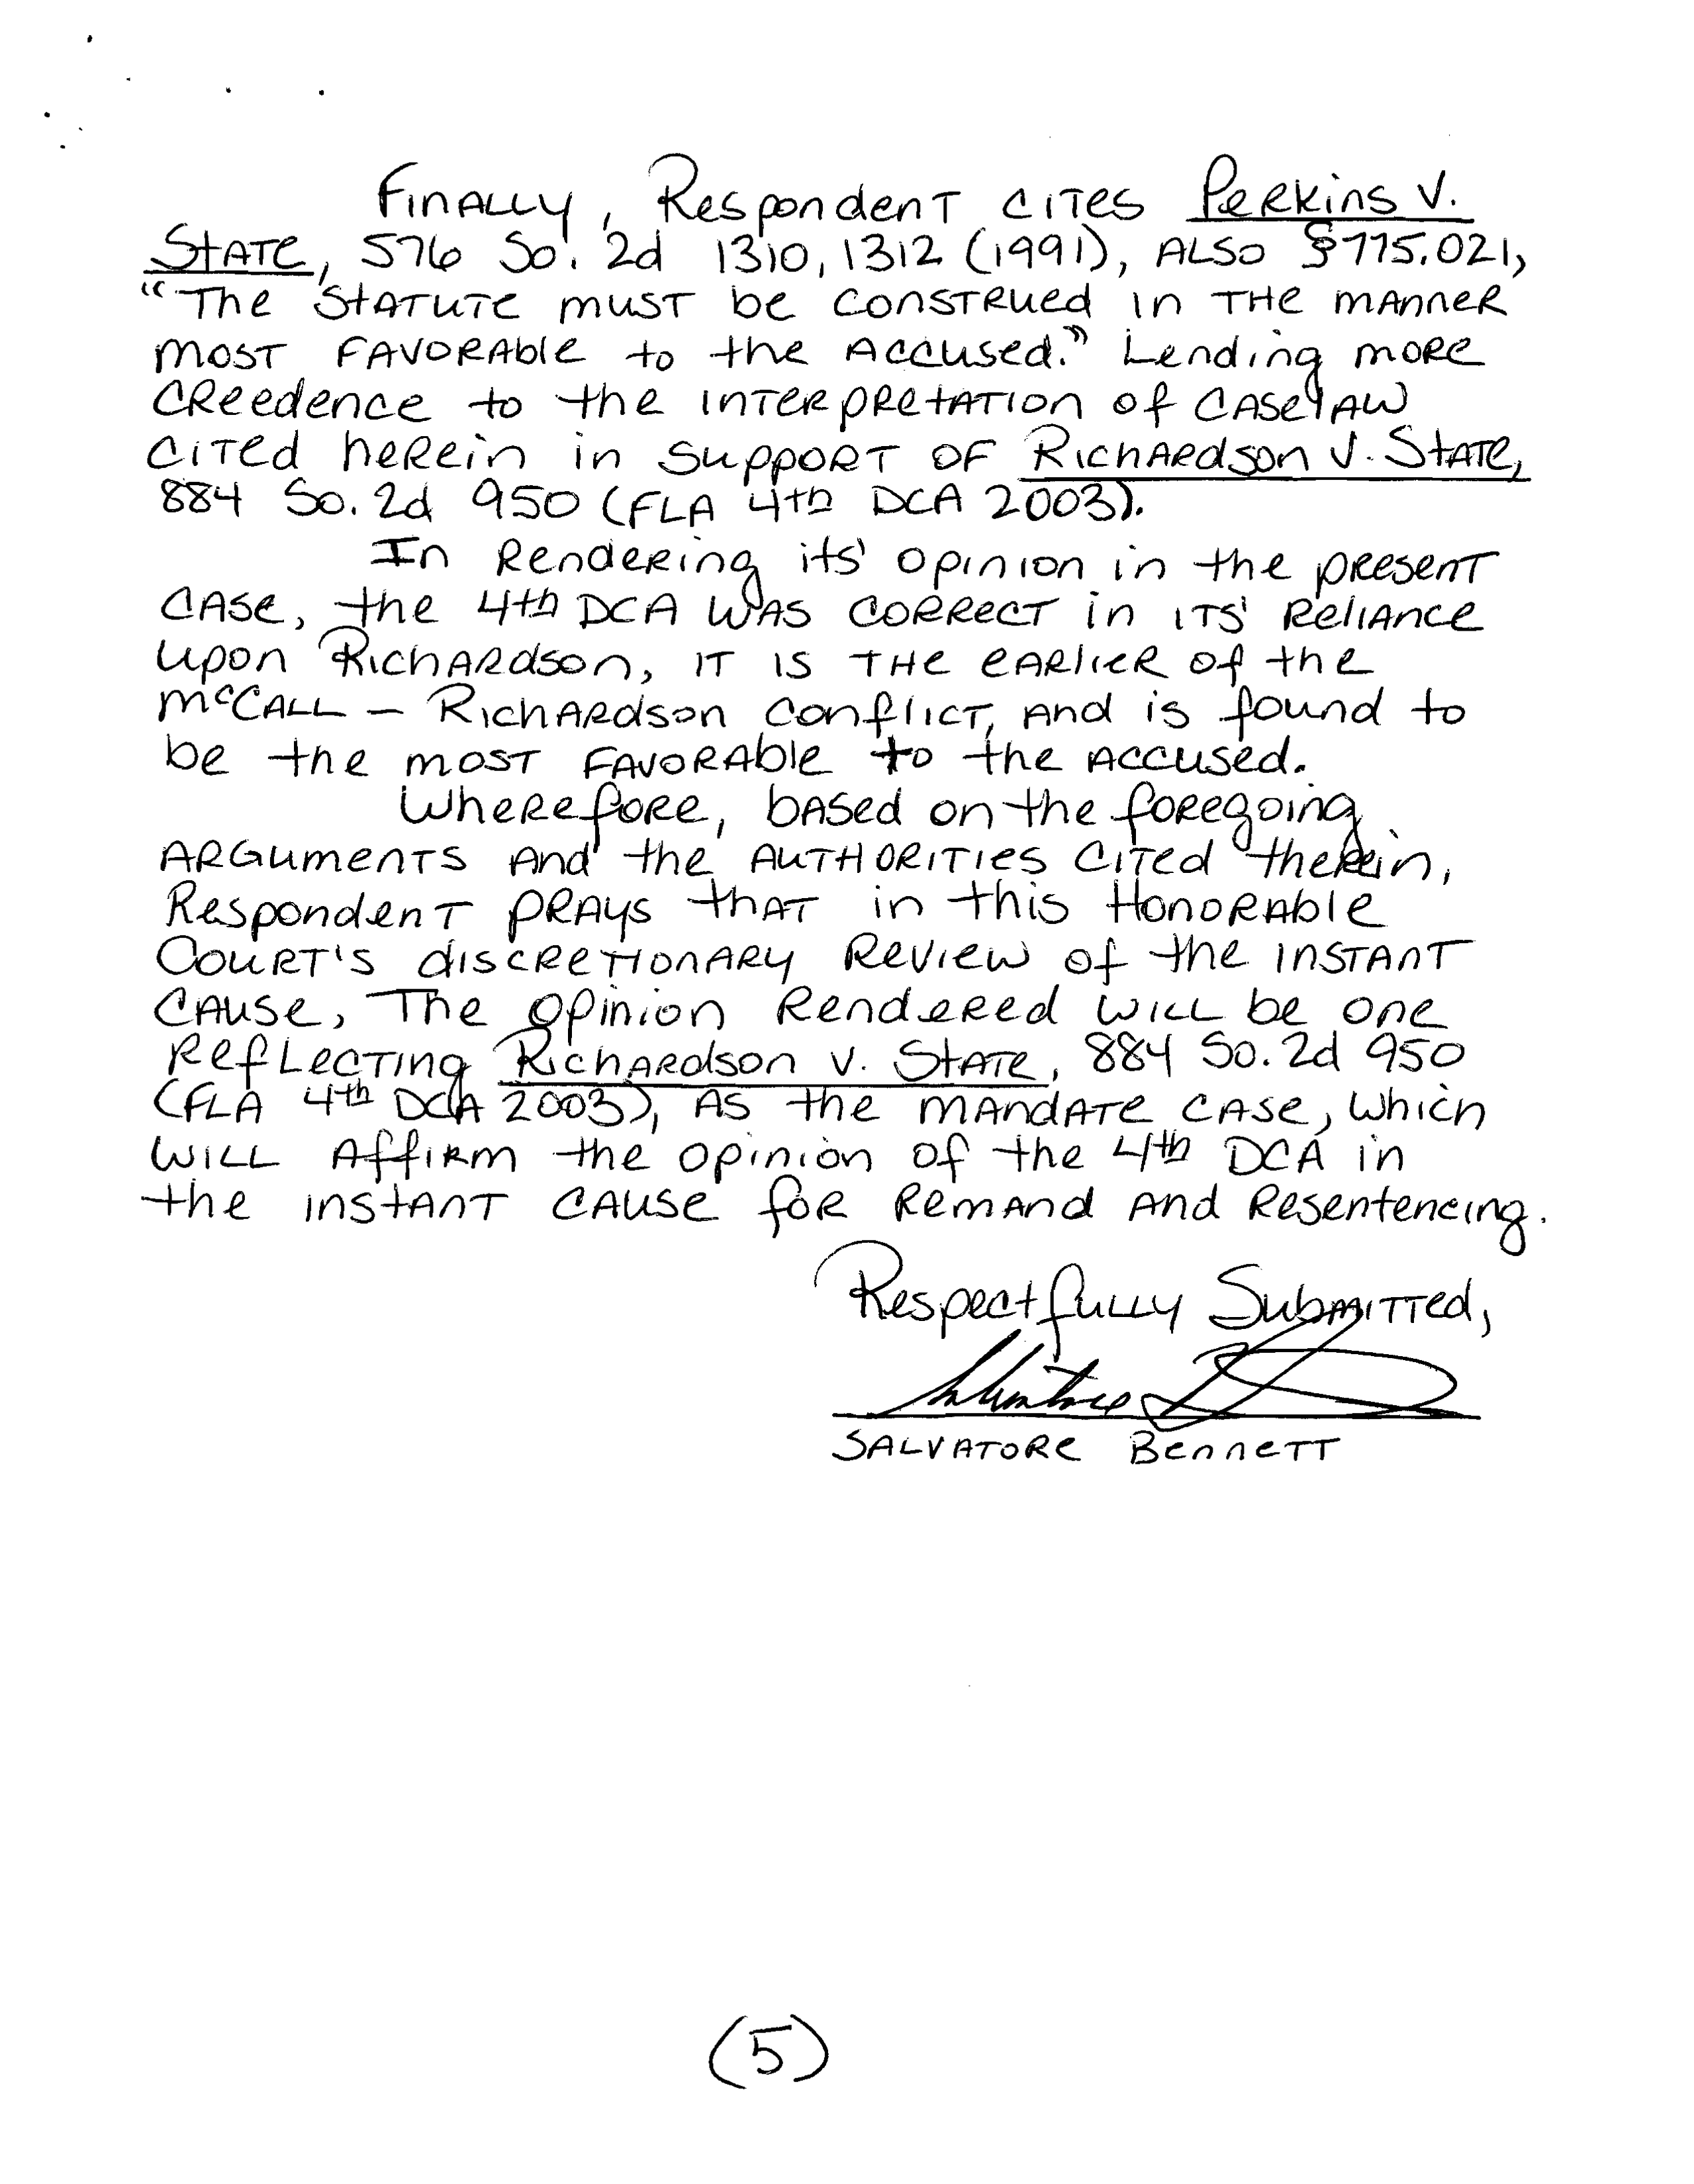 Finally, Respondent cites Perkins v.
State, 576 So. 2d 1310, 1312 (1991), also §775.021,
"The statute must be construed in the manner
most favorable to the accused." Lending more
creedence to the interpretation of caselaw
cited herein in support of Richardson v. State,
884 So. 2d 950 (Fla 4th DCA 2003).
In rendering its' opinion in the present
case, the 4th DCA was correct in its' reliance
upon Richardson, it is the earlier of the
McCall - Richardson conflict, and is found to
be the most favorable to the accused.
Wherefore, based on the foregoing
arguments and the authorities cited therein,
Respondent prays that in this Honorable
Court's discretionary review of the instant
cause, The opinion rendered will be one
reflecting Richardson v. State, 884 So. 2d 950
(Fla 4th DCA 2003), as the mandate case, which
will affirm the opinion of the 4th DCA in
the instant cause for remand and resentencing.
Respectfully Submitted,
Salvatore B
Salvatore Bennett
(5)